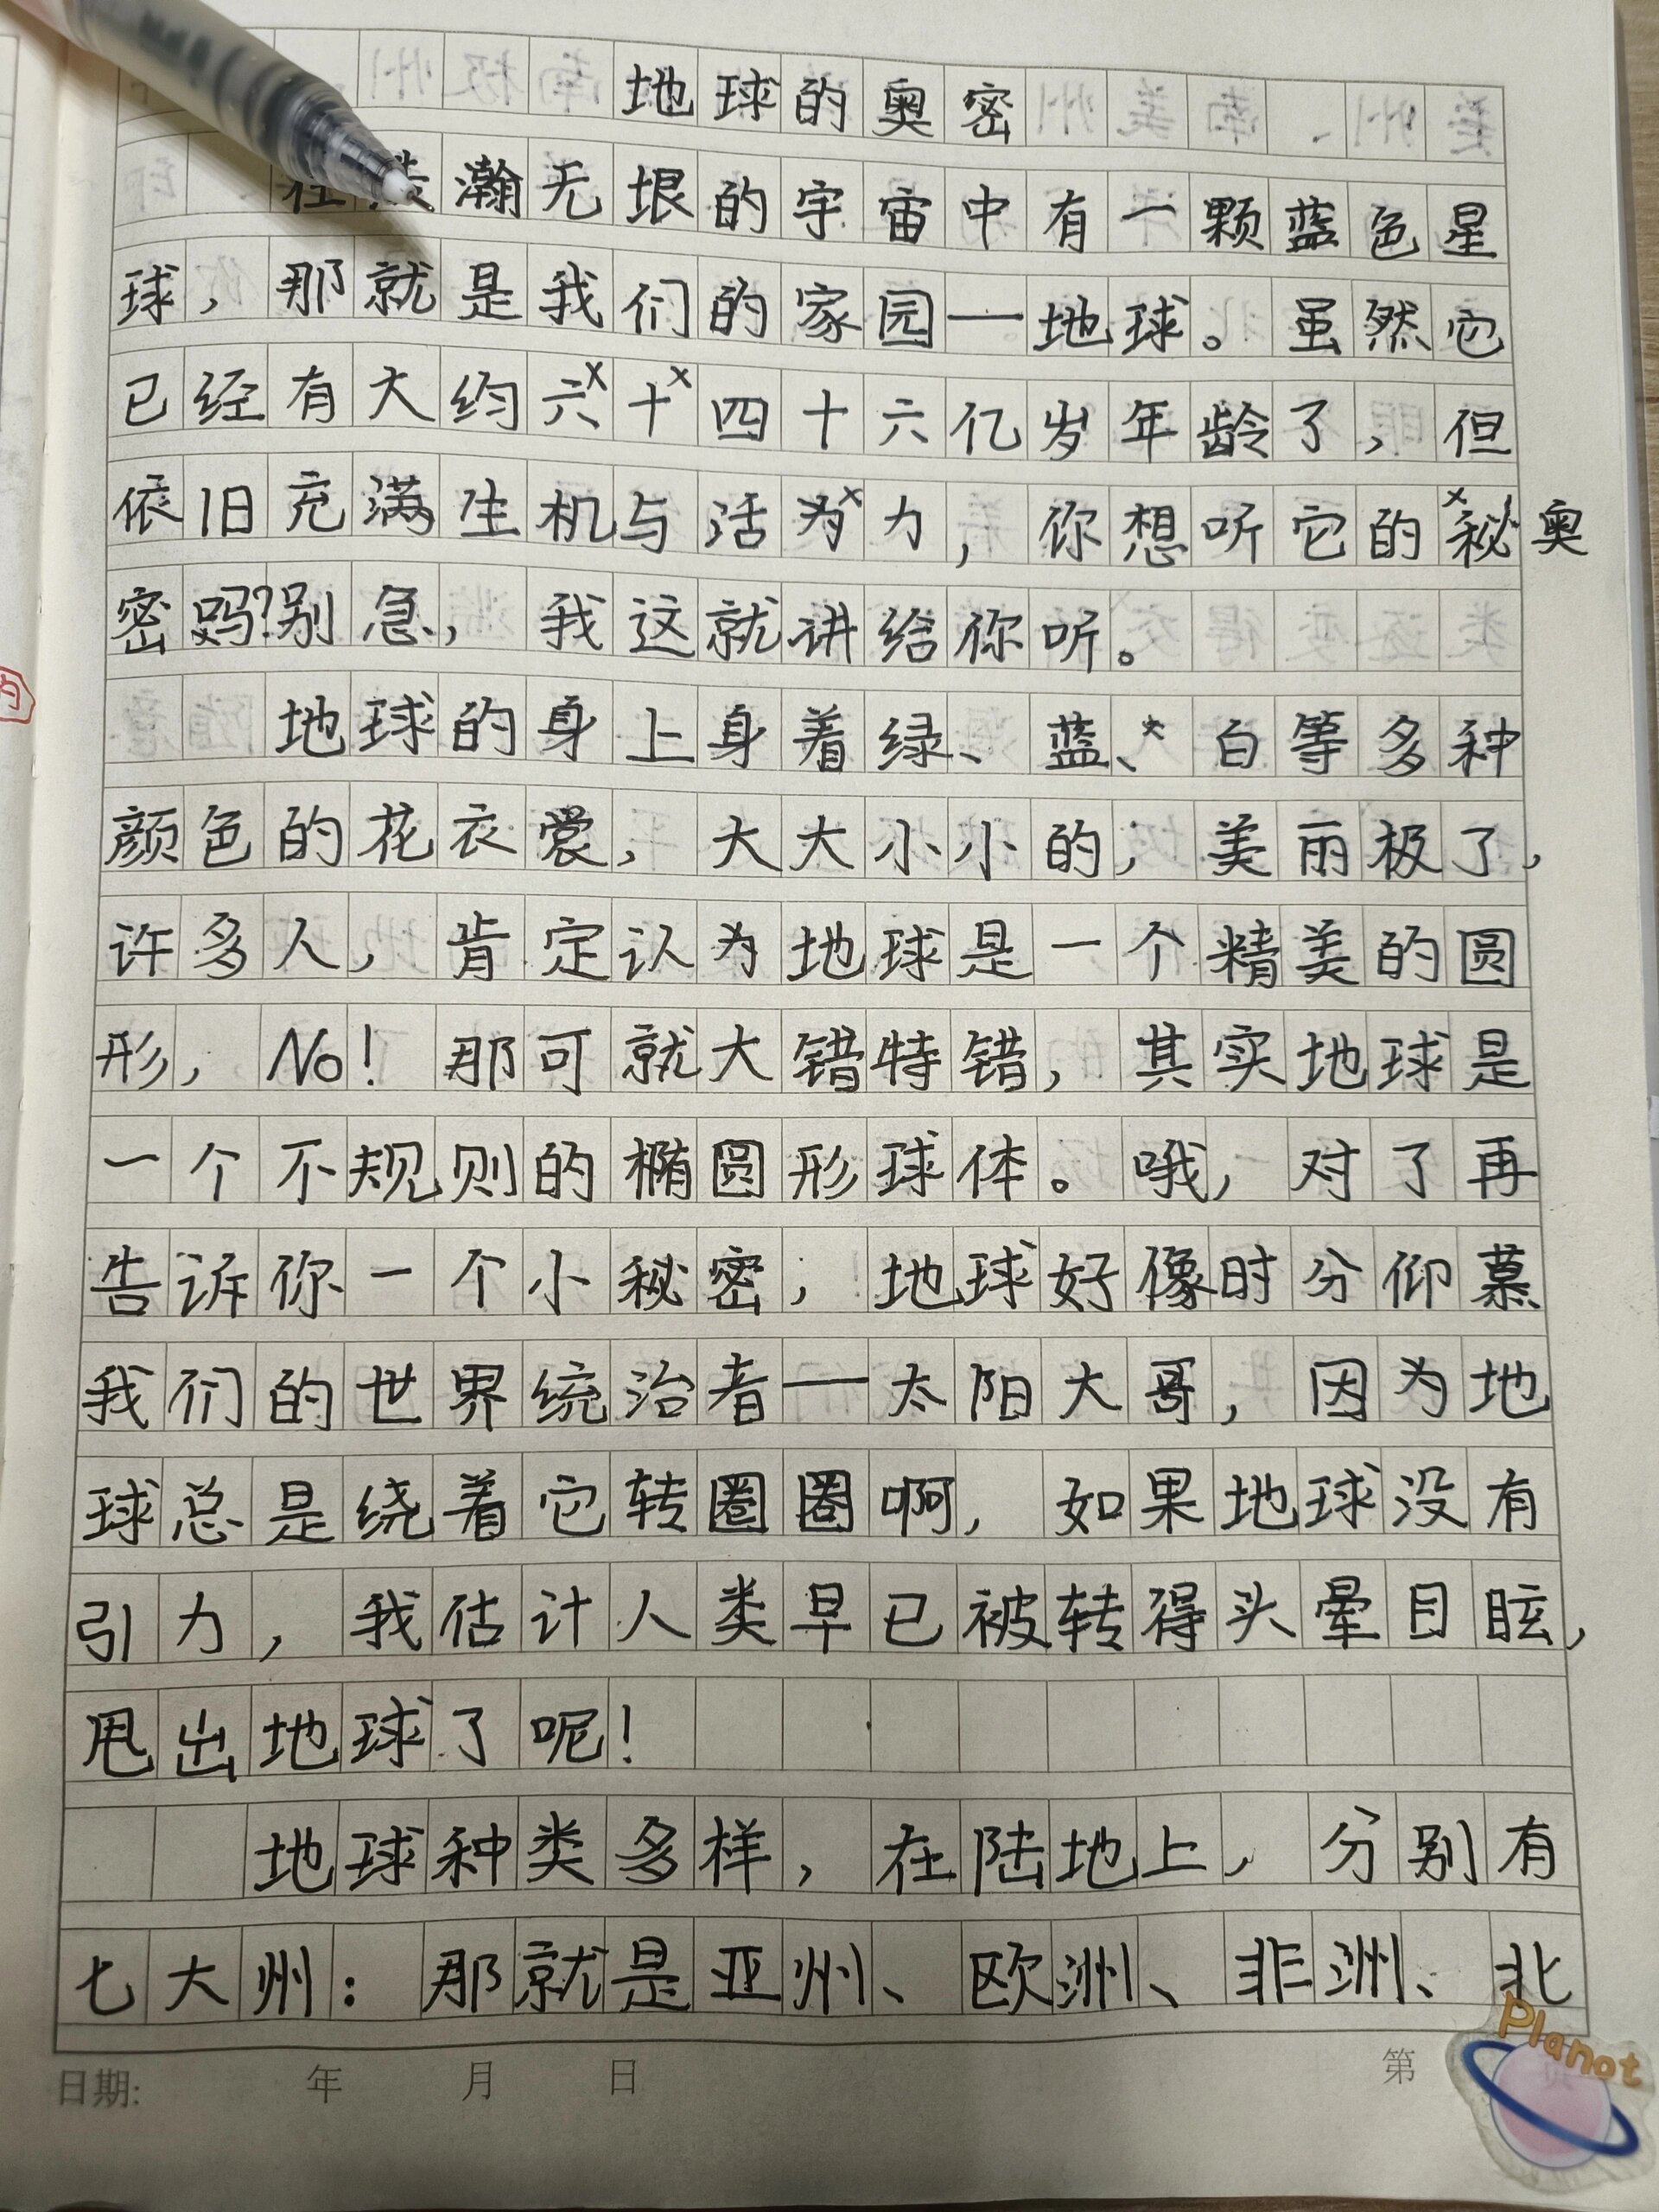 地球的奥密
在浩瀚无垠的宇宙中有一颗蓝色星
球，那就是我们的家园——地球。虽然它
已经有大约六十四十六亿岁年龄了，但
依旧充满生机与活为力，你想听它的秘奥
密吗?别急，我这就讲给你听。
地球的身上身着绿、蓝、白等多种
颜色的花衣裳，大大小小的，美丽极了，
许多人，肯定认为地球是一个精美的圆
形，No！那可就大错特错，其实地球是
一个不规则的椭圆形球体。哦，对了再
告诉你一个小秘密，地球好像时分仰慕
我们的世界统治者——太阳大哥，因为地
球总是绕着它转圈圈啊，如果地球没有
引力，我估计人类早已被转得头晕目眩，
甩出地球了呢！
地球种类多样，在陆地上，分别有
七大州：那就是亚州、欧洲、非洲、北
日期: 年 月 日 第
Planot